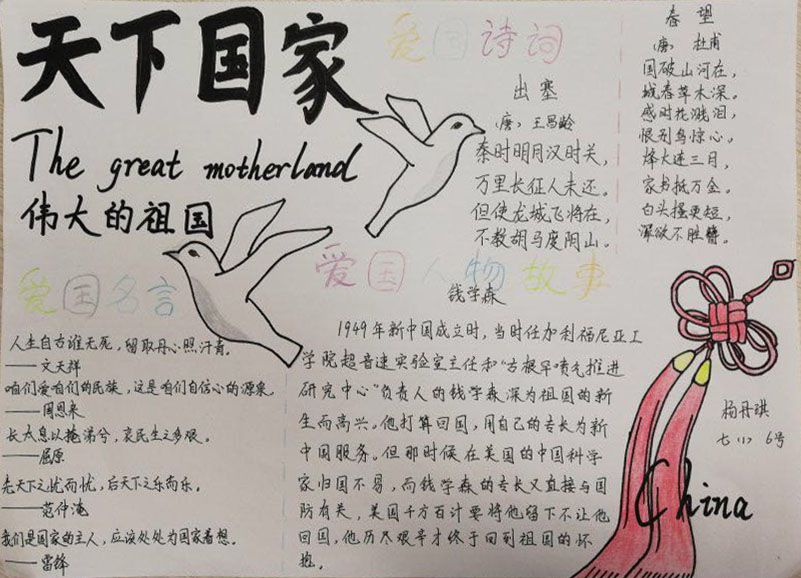 天下国家
The great motherland
伟大的祖国
爱国诗词
出塞
（唐）王昌龄
秦时明月汉时关，
万里长征人未还。
但使龙城飞将在，
不教胡马度阴山。
春望
（唐）杜甫
国破山河在，
城春草木深。
感时花溅泪，
恨别鸟惊心。
烽火连三月，
家书抵万金。
白头搔更短，
浑欲不胜簪。
爱国名言
人生自古谁无死，留取丹心照汗青。
——文天祥
咱们爱咱们的民族，这是咱们自信心的源泉。
——周恩来
长太息以掩涕兮，哀民生之多艰。
——屈原
先天下之忧而忧，后天下之乐而乐。
——范仲淹
我们是国家的主人，应该处处为国家着想。
——雷锋
爱国人物故事
钱学森
1949年新中国成立时，当时任加利福尼亚工
学院超音速实验室主任和“古根罕喷气推进
研究中心”负责人的钱学森深为祖国的新
生而高兴。他打算回国，用自己的专长为新
中国服务。但那时候在美国的中国科学
家归国不易，而钱学森的专长又直接与国
防有关，美国千方百计要将他留下不让他
回国，他历尽艰辛才终于回到祖国的怀
抱。
杨丹琪
七（1） 6号
China